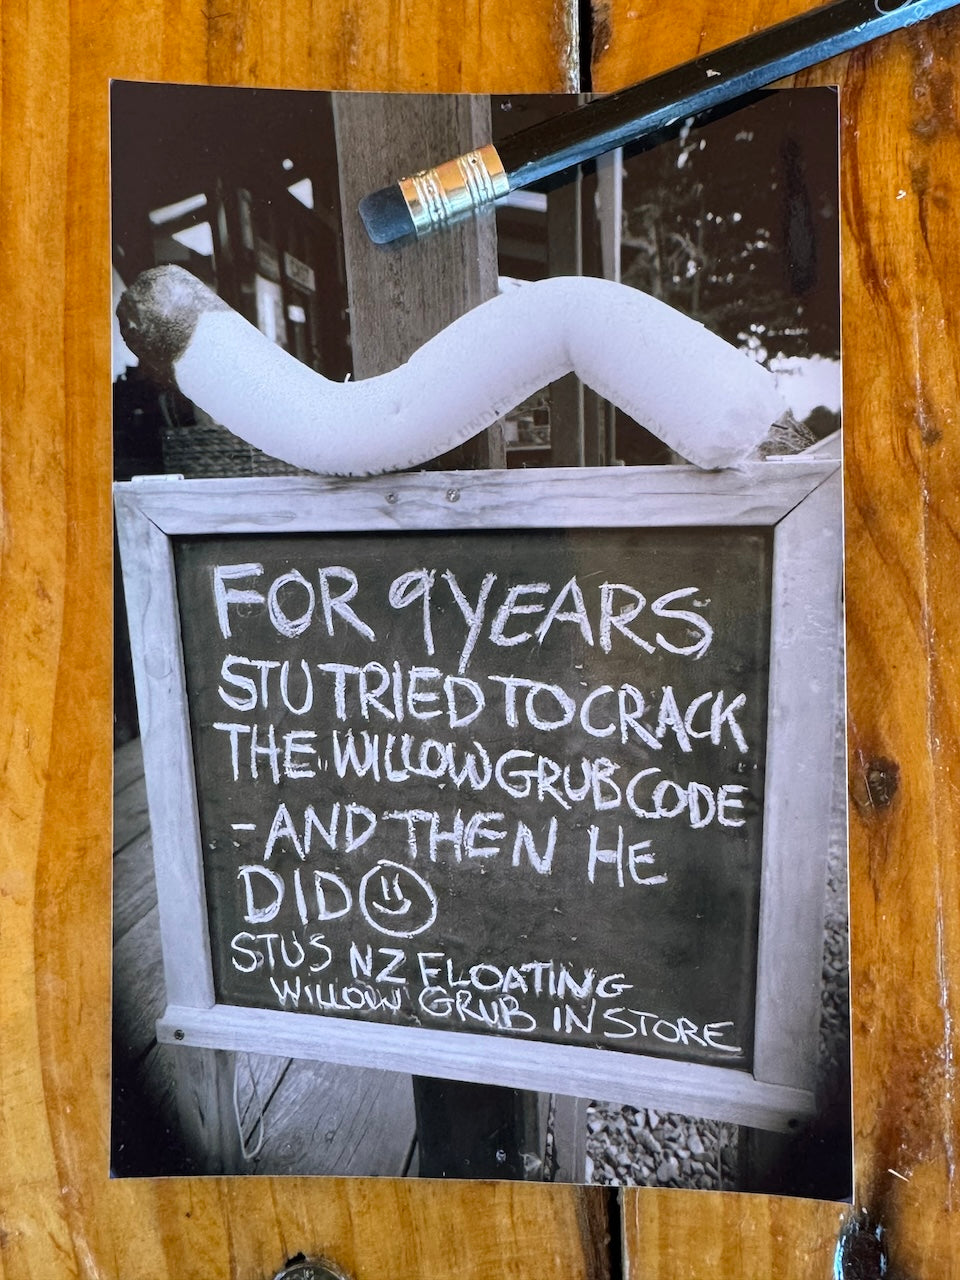 FOR 9 YEARS
STU TRIED TO CRACK
THE WILLOW GRUB CODE
- AND THEN HE
DID
STUS NZ FLOATING
WILLOW GRUB IN STORE